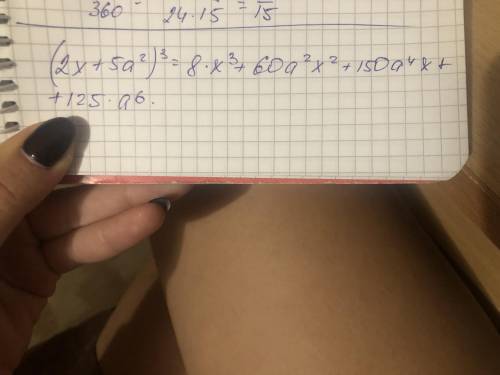 360 - 24·15 = 15
(2x+5a²)³=8·x³+60a²x²+150a⁴x+
+125·a6.